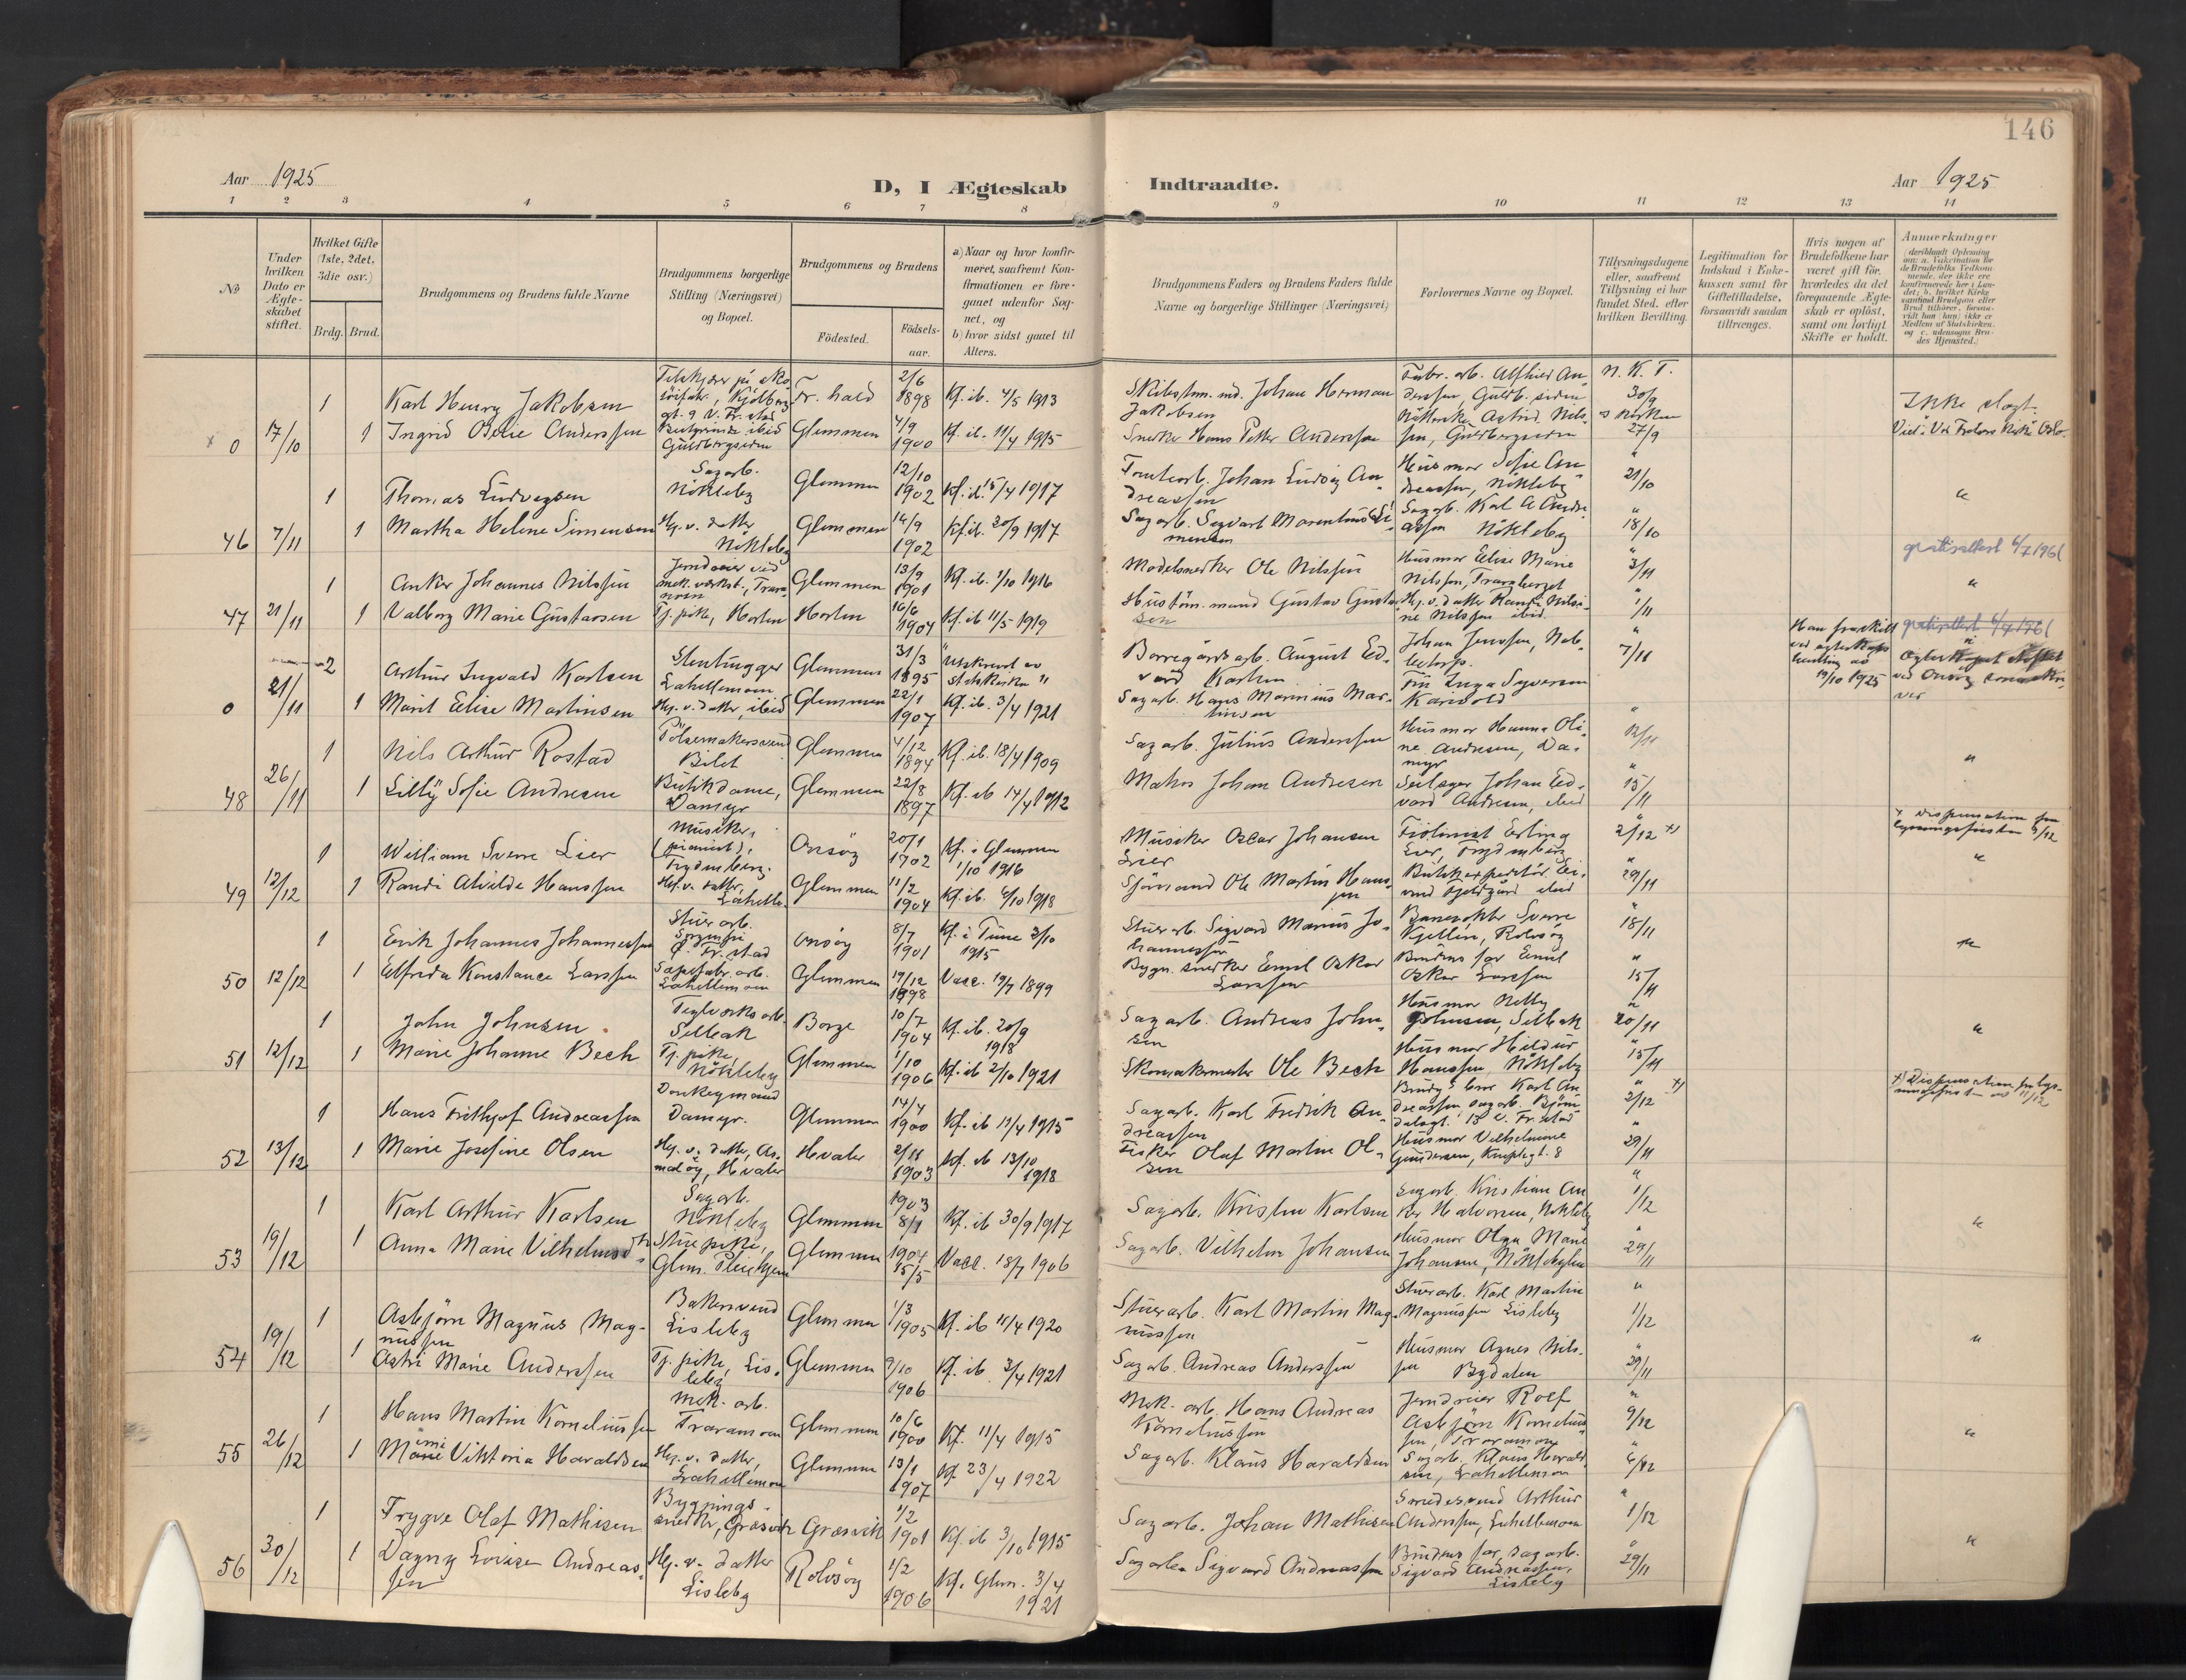 146
Aar 1925
D, I Ægteskab
Indtraadte.
Aar 1925
1 2 3 4 5 6 7 8 9 10 11 12 13 14
No
Under hvilken Dato er Ægteskabet stiftet.
Hvilket Gifte (1ste, 2det, 3die osv.)
Brdg. Brud.
Brudgommens og Brudens fulde Navne
Brudgommens borgerlige Stilling (Næringsvei) og Bopæl.
Brudgommens og Brudens
Födested.
Födsels-aar.
a) Naar og hvor konfirmeret, saafremt Konfirmationen er foregaaet udenfor Sognet, og
b) hvor sidst gaaet til Alters.
Brudgommens Faders og Brudens Faders fulde Navne og borgerlige Stillinger (Næringsvei)
Forlovernes Navne og Bopæl.
Tillysningsdagene eller, saafremt Tillysning ei har fundet Sted, efter hvilken Bevilling.
Legitimation for Indskud i Enkekassen samt for Giftetilladelse, forsaavidt saadan tiltrænges.
Hvis nogen af Brudefolkene har været gift för, hvorledes da det foregaaende Ægteskab er oplöst, samt om lovligt Skifte er holdt.
Anmærkninger
0 17/10
1 Karl Henry Jakobsen Fr. hald 2/6 1898 Kf. ib. 4/5 1913 Skibstm. md. Johan Herman Jakobsen 30/9 Ikke slagt.
1 Ingrid Otelie Anderssen Guldbergsiden Glemmen 4/9 1900 Kf. ib. 11/4 1915 Snekker Hans Petter Anderssen 27/9
46 7/11
1 Thomas Ludvigsen Sagarb. Nökleby Glemmen 12/10 1902 Kf. ib. 15/4 1917 Tomtearb. Johan Ludvig Andreassen Husmor Sofie Andreassen, Nökleby 21/10 "
1 Martha Helene Simensen Hg. v. datter Nökleby Glemmen 14/9 1902 Kf. ib. 30/9 1917 Sagarb. Sigvart Marentius Simensen Sagarb. Karl A Andreassen Nökleby 18/10
gratisattest 6/7 1961
47 21/11
1 Anker Johannes Nilssen Jerndreier ved mek. verkst., Traramoen Glemmen 13/9 1901 Kf. ib. 1/10 1916 Modelsnekker Ole Nilssen Husmor Elise Marie Nilssen, Traraberget 3/11 "
1 Valborg Marie Gustavsen Tj. pike, Horten Horten 16/6 1904 Kf. ib 11/5 1919 Hustöm. mand Gustav Gustavsen Hg. v. datter Randi Nilsine Nilssen ibid. 1/11
0 21/11
2 Arthur Ingvald Karlsen Stenhugger Lahellemoen Glemmen 31/3 1895 Utskrevet av statskirken Borregårdsarb. August Edvard Karlsen Johan Jenssen, Nabbetorp. 7/11 Han fraskilt ved egteskapsbevilling av 19/10 1925
1 Marit Elise Martinsen Hg. v. datter, ibid Glemmen 22/1 1907 Kf. ib. 3/4 1921 Sagarb. Hans Marinius Martinsen Fru Inga Syversen Karivold
48 26/11
1 Nils Arthur Rostad Pölsemakersvend Bilet Glemmen 4/12 1894 Kf. ib. 18/4 1909 Sagarb. Julius Anderssen Husmor Hanna Oline Andresen, Damyr 12/11 "
1 Lilly Sofie Andresen Butikdame, Damyr Glemmen 22/8 1897 Kf. ib 14/4 1912 Johan Andresen Johan Edvard Andresen, ibid 15/11
49 12/12
1 William Sverre Lier Musiker, (pianist), Frydenberg. Onsöy 20/1 1902 Kf. i Glemmen 1/10 1916 Musiker Oscar Johansen Lier Fiolinist Erling Lier, Frydenberg 2/12 x) x dispensation fra lysningsfristen 9/12
1 Randi Alvilde Hanssen Hg. v. datter, Lahelle Glemmen 11/2 1904 Kf. ib. 6/10 1918 Sjömand Ole Martin Hanssen Butikexpeditör Eivind Fjeldgård ibid 29/11
50 12/12
1 Erik Johannes Johannessen Stuerarb. Fr. stad Onsöy 8/7 1901 Kf. i Tune 3/10 1915 Stuerarb. Sigvard Marius Johannessen Banevokter Sverre Kjellin, Rolvsöy 18/11 "
1 Elfrida Konstance Larssen Sæpefabr. arb. Lahellemoen Glemmen 19/12 1898 Vacc. 19/7 1899 Bygn. snekker Emil Oskar Larssen Brudens far Emil Oskar Larssen 15/11
51 12/12
1 John Johnsen Teglverksarb. Selbak Borge 10/7 1904 Kf. ib. 20/9 1918 Sagarb. Andreas Johnsen Husmor Nelly Johnsen, Selbak 20/11 "
1 Marie Johanne Bech Tj. pike, Nökleby Glemmen 1/10 1906 Kf. ib 2/10 1921 Skomakermester Ole Bech Husmor Hildur Hanssen, Nökleby 15/11
52 13/12
1 Hans Frithjof Andreassen Donkeymand Damyr. Glemmen 14/4 1900 Kf. ib 11/4 1915 Sagarb. Karl Fredrik Andreassen Brudg.s bror Karl Andreassen, sagarb. 2/12 x) x) Dispensation fra lysningsfrist av 11/12
1 Marie Josefine Olsen Hg. v. datter, Asmalöy, Hvaler Hvaler 2/11 1903 Kf. ib 13/10 1918 Fisker Olaf Martin Olsen Husmor Vilhelmine Gundersen 29/11
53 19/12
1 Karl Arthur Karlsen Sagarb. Nökleby Glemmen 1903 8/1 Kf. ib 30/9 1917 Sagarb. Kristen Karlsen Sagarb. Kristian Anker Halvorsen, Nökleby 1/12 "
1 Anna Marie Vilhelmsdtr Stuepike, Glem. Pleiehjem Glemmen 1904 15/5 Vacc. 18/7 1906 Sagarb. Vilhelm Johansen Husmor Olga Marie Johansen, 29/11
54 19/12
1 Asbjörn Magnus Magnussen Bakersvend Lisleby Glemmen 1/3 1905 Kf. ib 11/4 1920 Stuerarb. Karl Martin Magnussen Stuerarb. Karl Martin Magnussen Lisleby 1/12 "
1 Astri Marie Anderssen Tj. pike, Lisleby Glemmen 9/10 1906 Kf. ib. 3/4 1921 Sagarb. Andreas Anderssen Husmor Agnes Nilssen Bydalen 29/11
55 26/12
1 Hans Martin Korneliussen Mek. arb. Traramoen Glemmen 10/6 1900 Kf. 11/4 1915 Mek. arb. Hans Andreas Korneliussen Jerndreier Rolf Asbjörn Korneliussen, Traramoen 9/12 "
1 Mimi Viktoria Haraldsen Hg. v. datter, Lahellemoen Glemmen 13/1 1907 Kf. 23/4 1922 Sagarb. Klaus Haraldsen Sagarb. Klaus Haraldsen, Lahellemoen 6/12
56 30/12
1 Trygve Olaf Mathisen Bygningssnekker, Græsvik Græsvik 1/2 1901 Kf. ib 3/10 1915 Sagarb. Johan Mathisen Smedesvend Arthur Anderssen, Lahellemoen 1/12 "
1 Dagny Lovise Andreassen Hg. v. datter Lisleby Rolvsöy 1/2 1906 Kf. Glem. 3/4 1921 Sagarb. Sigvard Andreassen Brudens far, sagarb. Sigvard Andreassen, Lisleby 29/11